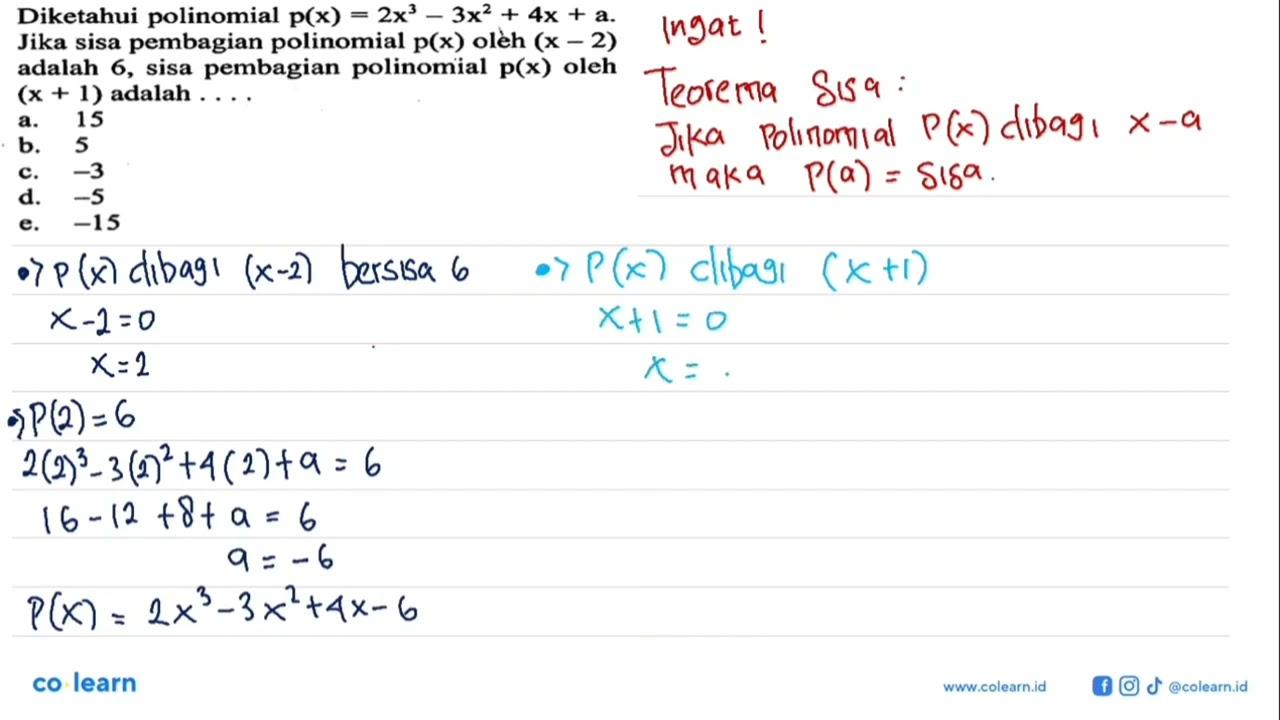 Diketahui polinomial p(x) = 2x³ − 3x² + 4x + a.
Jika sisa pembagian polinomial p(x) oleh (x − 2)
adalah 6, sisa pembagian polinomial p(x) oleh
(x + 1) adalah . . . .
a. 15
b. 5
c. −3
d. −5
e. −15
Ingat !
Teorema Sisa :
Jika Polinomial P(x) dibagi x-a
maka P(a) = Sisa.
•> P(x) dibagi (x-2) bersisa 6
x-2=0
x=2
P(2)=6
2(2)³-3(2)²+4(2)+a = 6
16-12+8+a = 6
a = -6
P(x) = 2x³-3x²+4x-6
•> P(x) dibagi (x+1)
x+1=0
x= .
co learn
www.colearn.id
@colearn.id